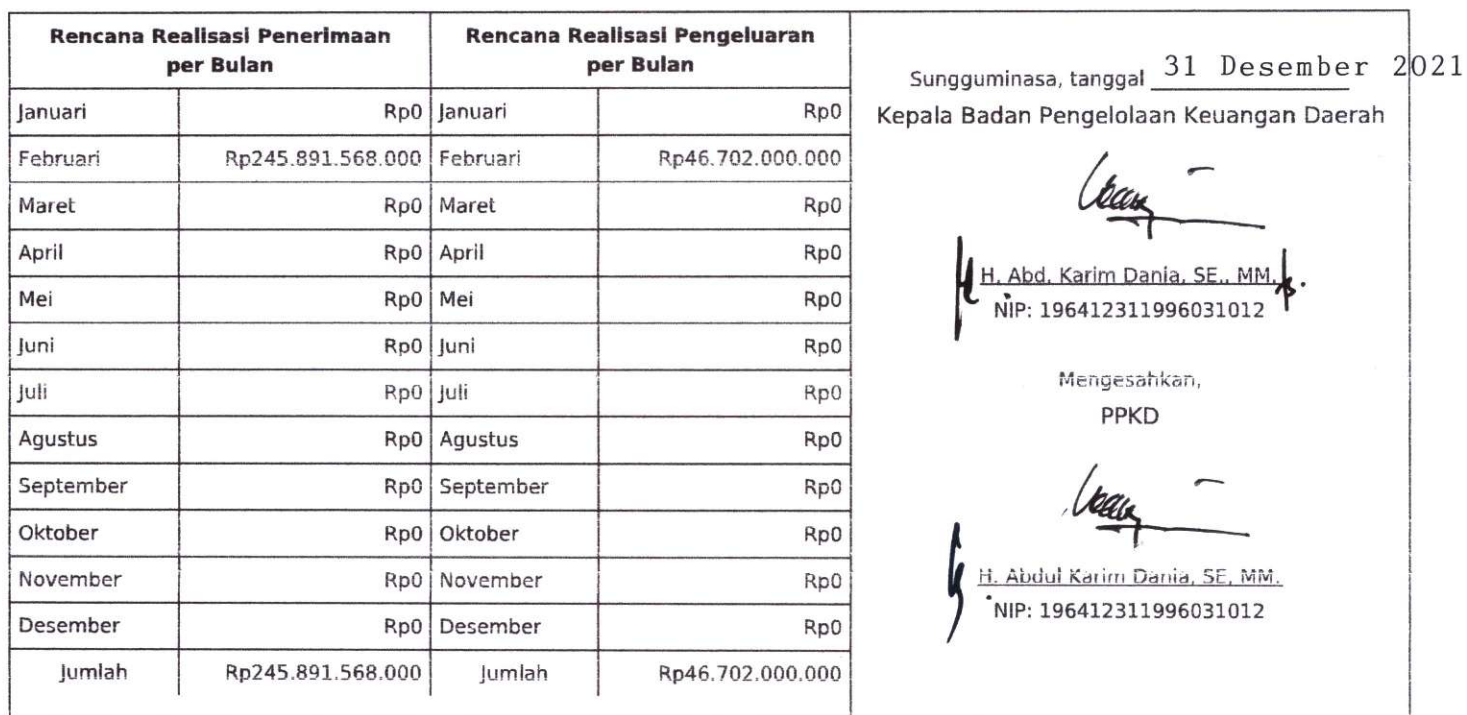 Rencana Realisasi Penerimaan per Bulan Rencana Realisasi Pengeluaran per Bulan
Januari Rp0 Januari Rp0
Februari Rp245.891.568.000 Februari Rp46.702.000.000
Maret Rp0 Maret Rp0
April Rp0 April Rp0
Mei Rp0 Mei Rp0
Juni Rp0 Juni Rp0
Juli Rp0 Juli Rp0
Agustus Rp0 Agustus Rp0
September Rp0 September Rp0
Oktober Rp0 Oktober Rp0
November Rp0 November Rp0
Desember Rp0 Desember Rp0
Jumlah Rp245.891.568.000 Jumlah Rp46.702.000.000
Sungguminasa, tanggal 31 Desember 2021
Kepala Badan Pengelolaan Keuangan Daerah
H. Abd. Karim Dania, SE., MM.
NIP: 196412311996031012
Mengesahkan,
PPKD
H. Abdul Karim Dania, SE, MM.
NIP: 196412311996031012